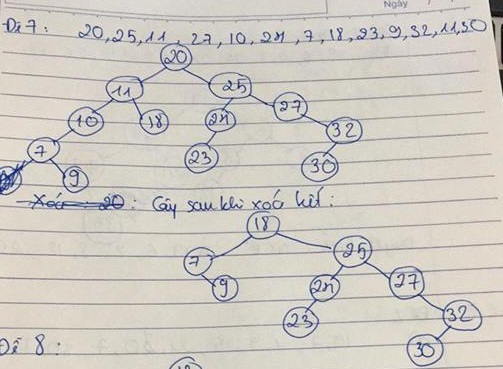 Ngày
Đề 7: 20, 25, 11, 27, 10, 24, 7, 18, 23, 9, 32, 11, 30
20
11 25
10 18 24 27
7 23 32
9 30
Xoá 20: Cây sau khi xoá hết:
18
7 25
9 24 27
23 32
30
Đề 8: